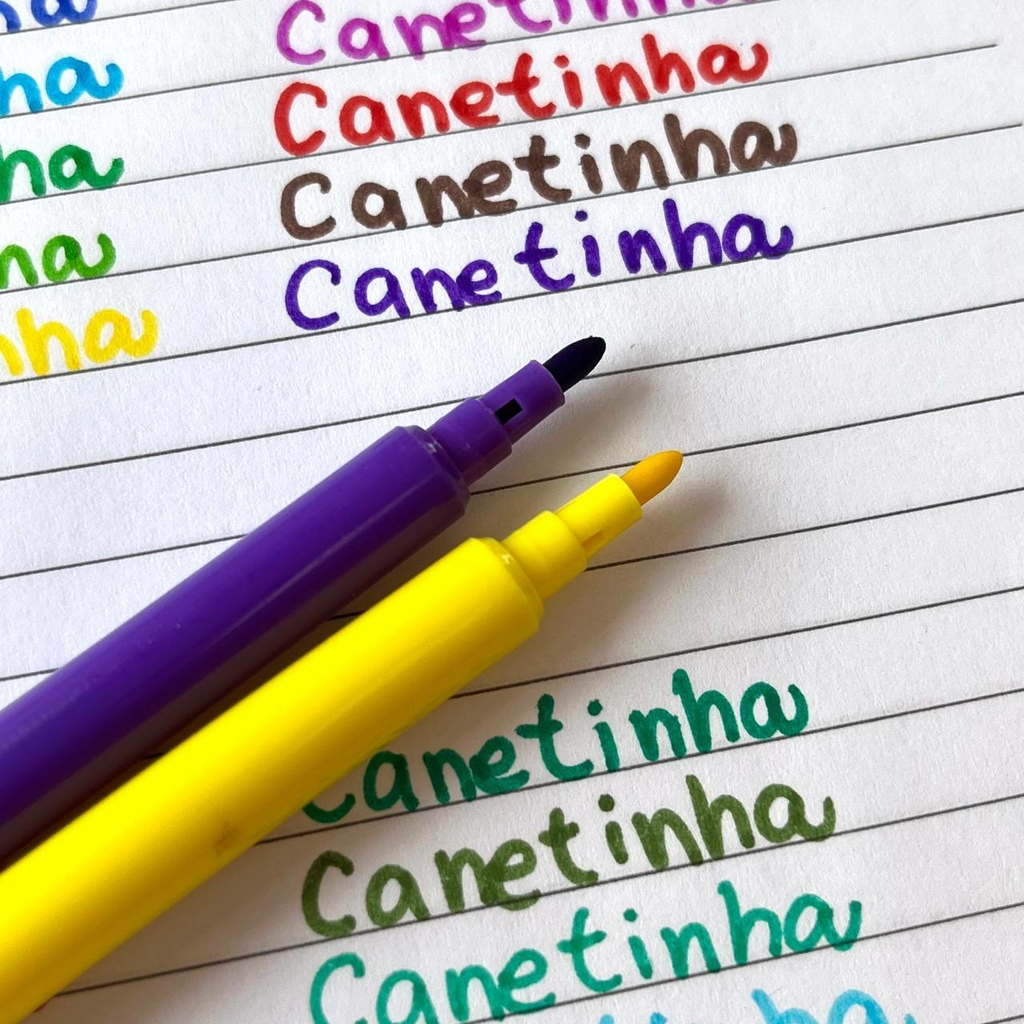 nha
nha
nha
nha
Canetinha
Canetinha
Canetinha
Canetinha
Canetinha
Canetinha
Canetinha